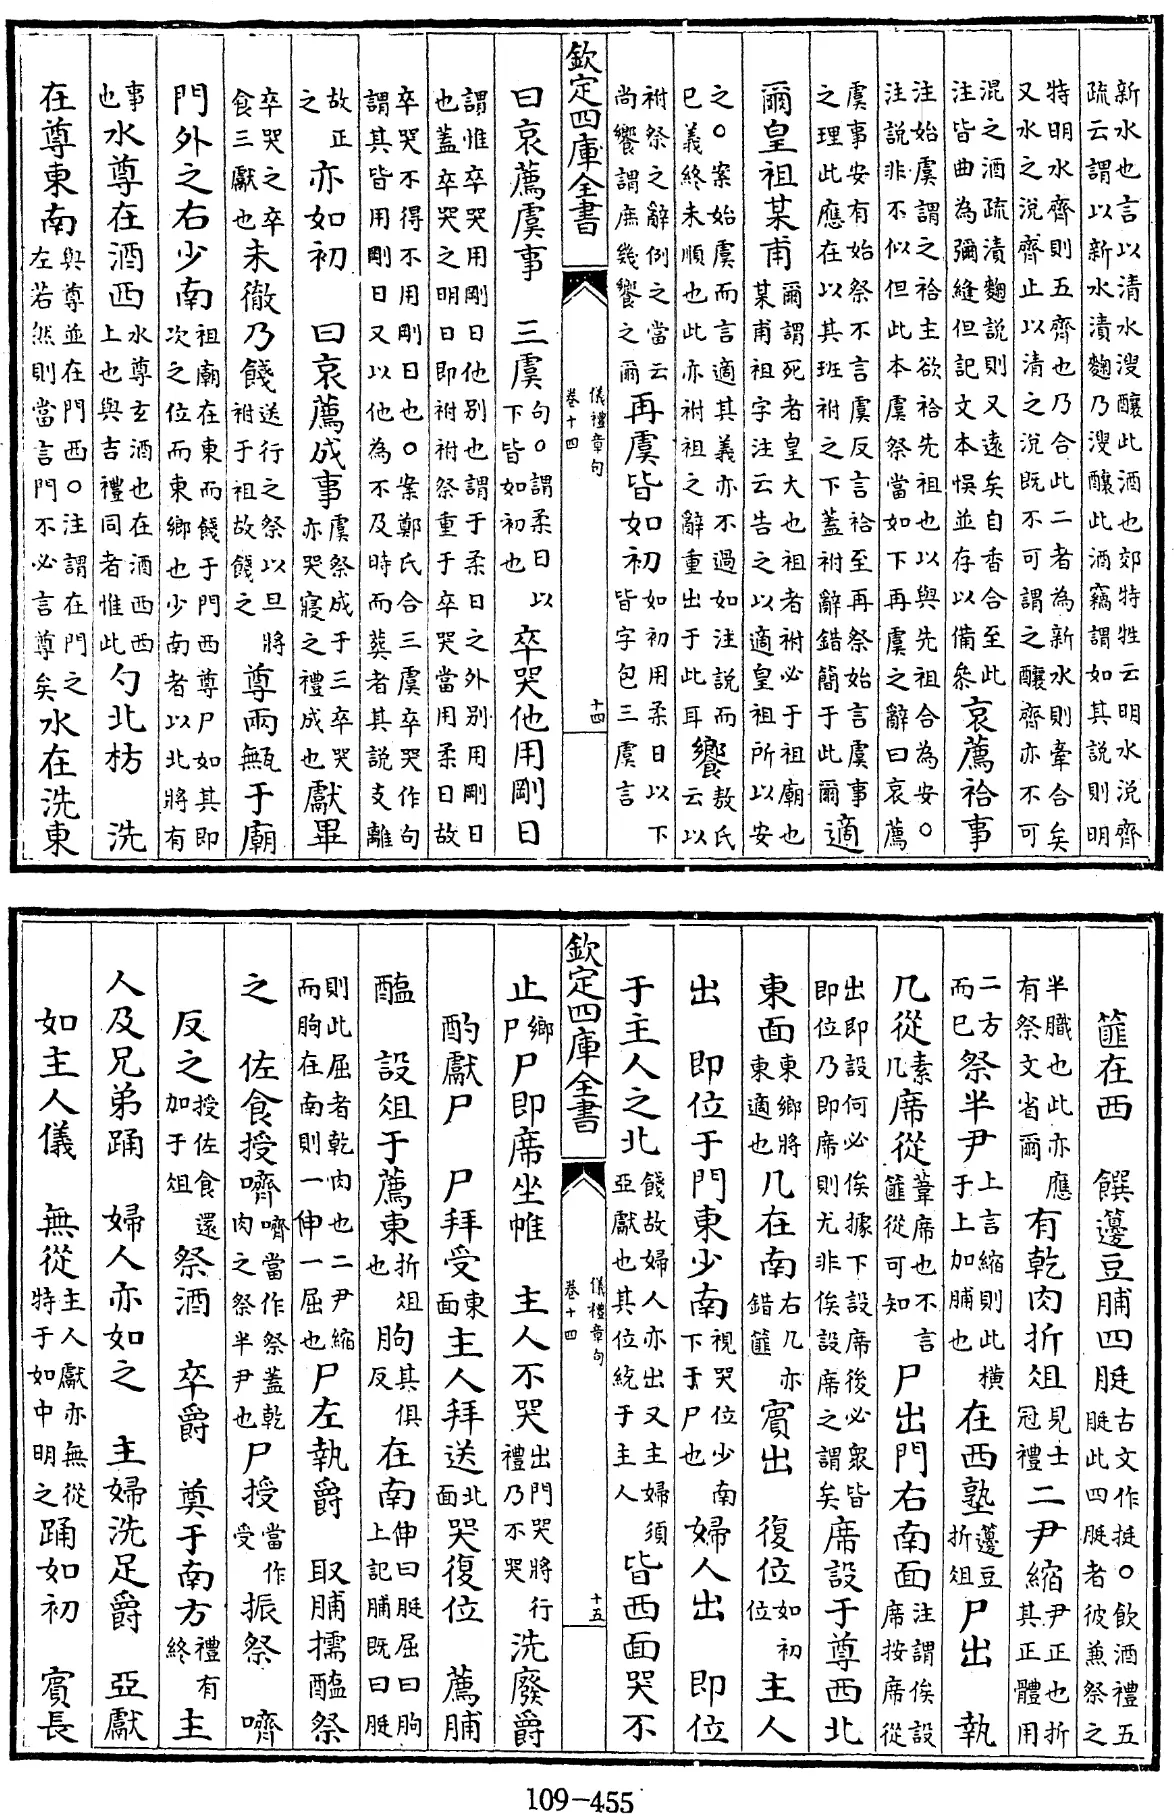 新水也言以清水溲釀此酒也郊特牲云明水説齊
疏云謂以新水漬麴乃溲釀此酒竊謂如其説則明
特明水齊則五齊也乃合此二者為新水則牽合矣
又水之説齊止以清之説既不可謂之釀齊亦不可
混之酒疏漬麴説則又遠矣自香合至此注皆曲為彌縫但記文本悞並存以備叅哀薦祫事
注始虞謂之祫主欲祫先祖也以與先祖合為安○
注説非不似但此本虞祭當如下再虞之辭曰哀薦
虞事安有始祭不言虞反言祫至再祭始言虞事之理此應在以其班祔之下蓋祔辭錯簡于此爾適
爾皇祖某甫爾謂死者皇大也祖者祔必于祖廟也某甫祖字注云告之以適皇祖所以安
之○案始虞而言適其義亦不過如注説而已義終未順也此亦祔祖之辭重出于此耳饗敖氏云以
祔祭之辭例之當云尚饗謂庶幾饗之爾再虞皆如初如初用柔日以下皆字包三虞言
欽定四庫全書
儀禮章句
卷十四
十四
曰哀薦虞事 三虞句○謂柔日以下皆如初也卒哭他用剛日
謂惟卒哭用剛日他别也謂于柔日之外别用剛日
也蓋卒哭之明日即祔祔祭重于卒哭當用柔日故
卒哭不得不用剛日也○案鄭氏合三虞卒哭作句
謂其皆用剛日又以他為不及時而葬者其説支離
故正之亦如初 曰哀薦成事虞祭成于三卒哭亦哭寢之禮成也獻畢
卒哭之卒食三獻也未徹乃餞送行之祭以旦將祔于祖故餞之尊兩甒于廟
門外之右少南祖廟在東而餞于門西尊尸如其即次之位而東鄉也少南者以北將有
事也水尊在酒西水尊玄酒也在酒西西上也與吉禮同者惟此勺北枋 洗
在尊東南與尊並在門西○注謂在門之左若然則當言門不必言尊矣水在洗東
篚在西 饌籩豆脯四脡古文作挺○飲酒禮五脡此四脡者彼兼祭之
半膱也此亦應有祭文省爾有乾肉折俎見士冠禮二尹縮尹正也折其正體用
二方而已祭半尹上言縮則此横于上加脯也在西塾籩豆折俎尸出 執
几從素几席從葦席也不言篚從可知尸出門右南面注謂俟設席按席從
出即設何必俟據下設席後必衆皆即位乃即席則尤非俟設席之謂矣席設于尊西北
東面東鄉將東適也几在南右几亦錯篚賓出 復位如初位主人
出 即位于門東少南視哭位少南下于尸也婦人出 即位
于主人之北餞故婦人亦出又主婦須亞獻也其位統于主人皆西面哭不
欽定四庫全書
儀禮章句
卷十四
十五
止鄉尸尸即席坐帷 主人不哭出門哭將行禮乃不哭洗廢爵
酌獻尸 尸拜受東面主人拜送北面哭復位 薦脯
醢 設俎于薦東折俎也朐其俱反在南伸曰脡屈曰朐上記脯既曰脡
則此屈者乾肉也二尹縮而朐在南則一伸一屈也尸左執爵 取脯擩醢祭
之 佐食授嚌嚌當作祭蓋乾肉之祭半尹也尸授當作受振祭 嚌
反之授佐食還加于俎祭酒 卒爵 奠于南方禮有終主
人及兄弟踊 婦人亦如之 主婦洗足爵 亞獻
如主人儀 無從主人獻亦無從特于如中明之踊如初 賓長
109-455